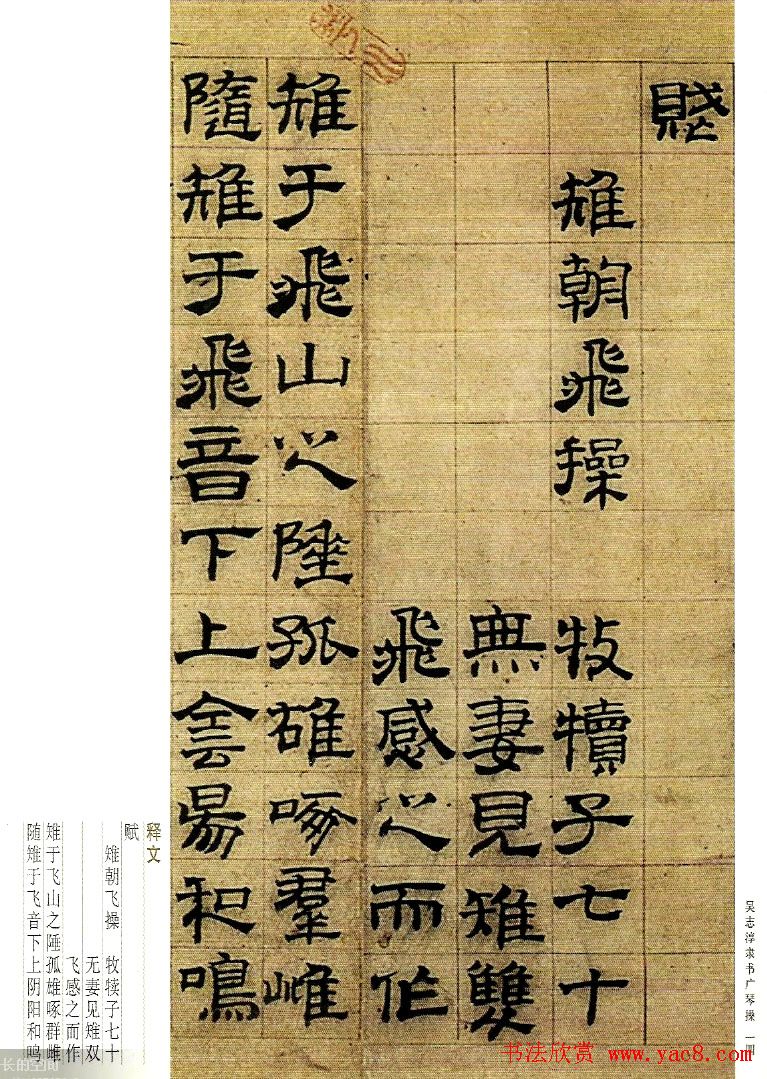 賦
雉朝飛操 牧犢子七十
無妻見雉雙
飛感之而作
雉于飛山之陲孤雄啄羣雌
隨雉于飛音下上侌昜和鳴
吴志淳隶书广琴操 一四
释文
赋
雉朝飞操 牧犊子七十
无妻见雉双
飞感之而作
雉于飞山之陲孤雄啄群雌
随雉于飞音下上阴阳和鸣
长的空间
书法欣赏 www.yac8.com